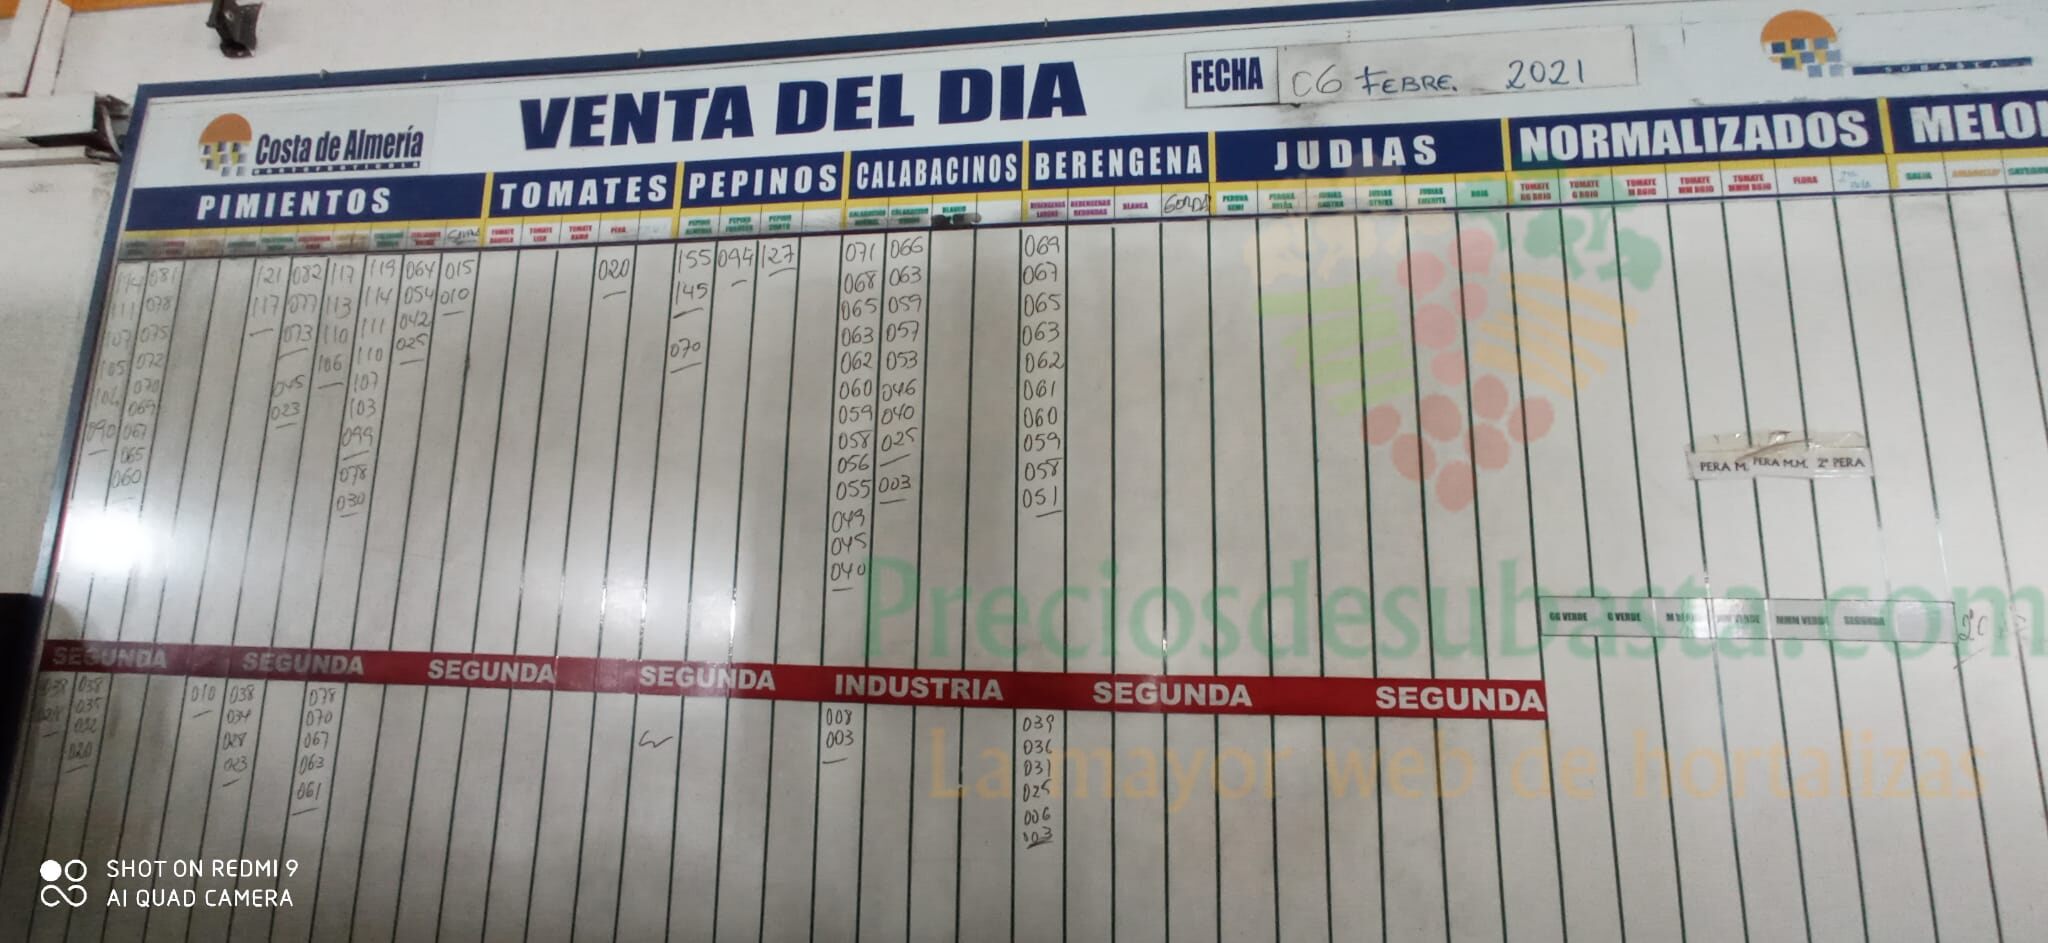 VENTA DEL DIA
FECHA 06 FEBRE. 2021
SUBASTA
Costa de Almería
PIMIENTOS TOMATES PEPINOS CALABACINOS BERENGENA JUDIAS NORMALIZADOS MELO
PERA
BLANCO
BERENGENAS LARGAS BERENGENAS REDONDAS BLANCA GORDA
PERONA SEMI
JUDIAS STRIKE JUDIAS EMERITE ROJA
TOMATE GG ROJO TOMATE G ROJO TOMATE M ROJO TOMATE MM ROJO TOMATE MMM ROJO FLORA
GALIA AMARILLO
114 081 121 082 117 119 064 015 020 155 094 127 071 066 069
111 078 117 077 113 114 054 010 145 068 063 067
107 075 073 110 111 042 070 065 059 065
105 072 106 110 025 063 057 063
104 070 045 107 062 053 062
090 069 023 103 060 046 061
067 099 059 040 060
065 078 058 025 059
060 030 056 003 058
055 051
049
045
040
PERA M. PERA M.M. 2ª PERA
Preciosdesubasta.com
GG VERDE G VERDE M VERDE MM VERDE MMM VERDE SEGUNDA
SEGUNDA SEGUNDA SEGUNDA SEGUNDA INDUSTRIA SEGUNDA SEGUNDA
038 038 010 038 078 008 039
035 034 070 003 036
032 028 067 031
020 023 063 025
061 006
003
La mayor web de hortalizas
SHOT ON REDMI 9
AI QUAD CAMERA